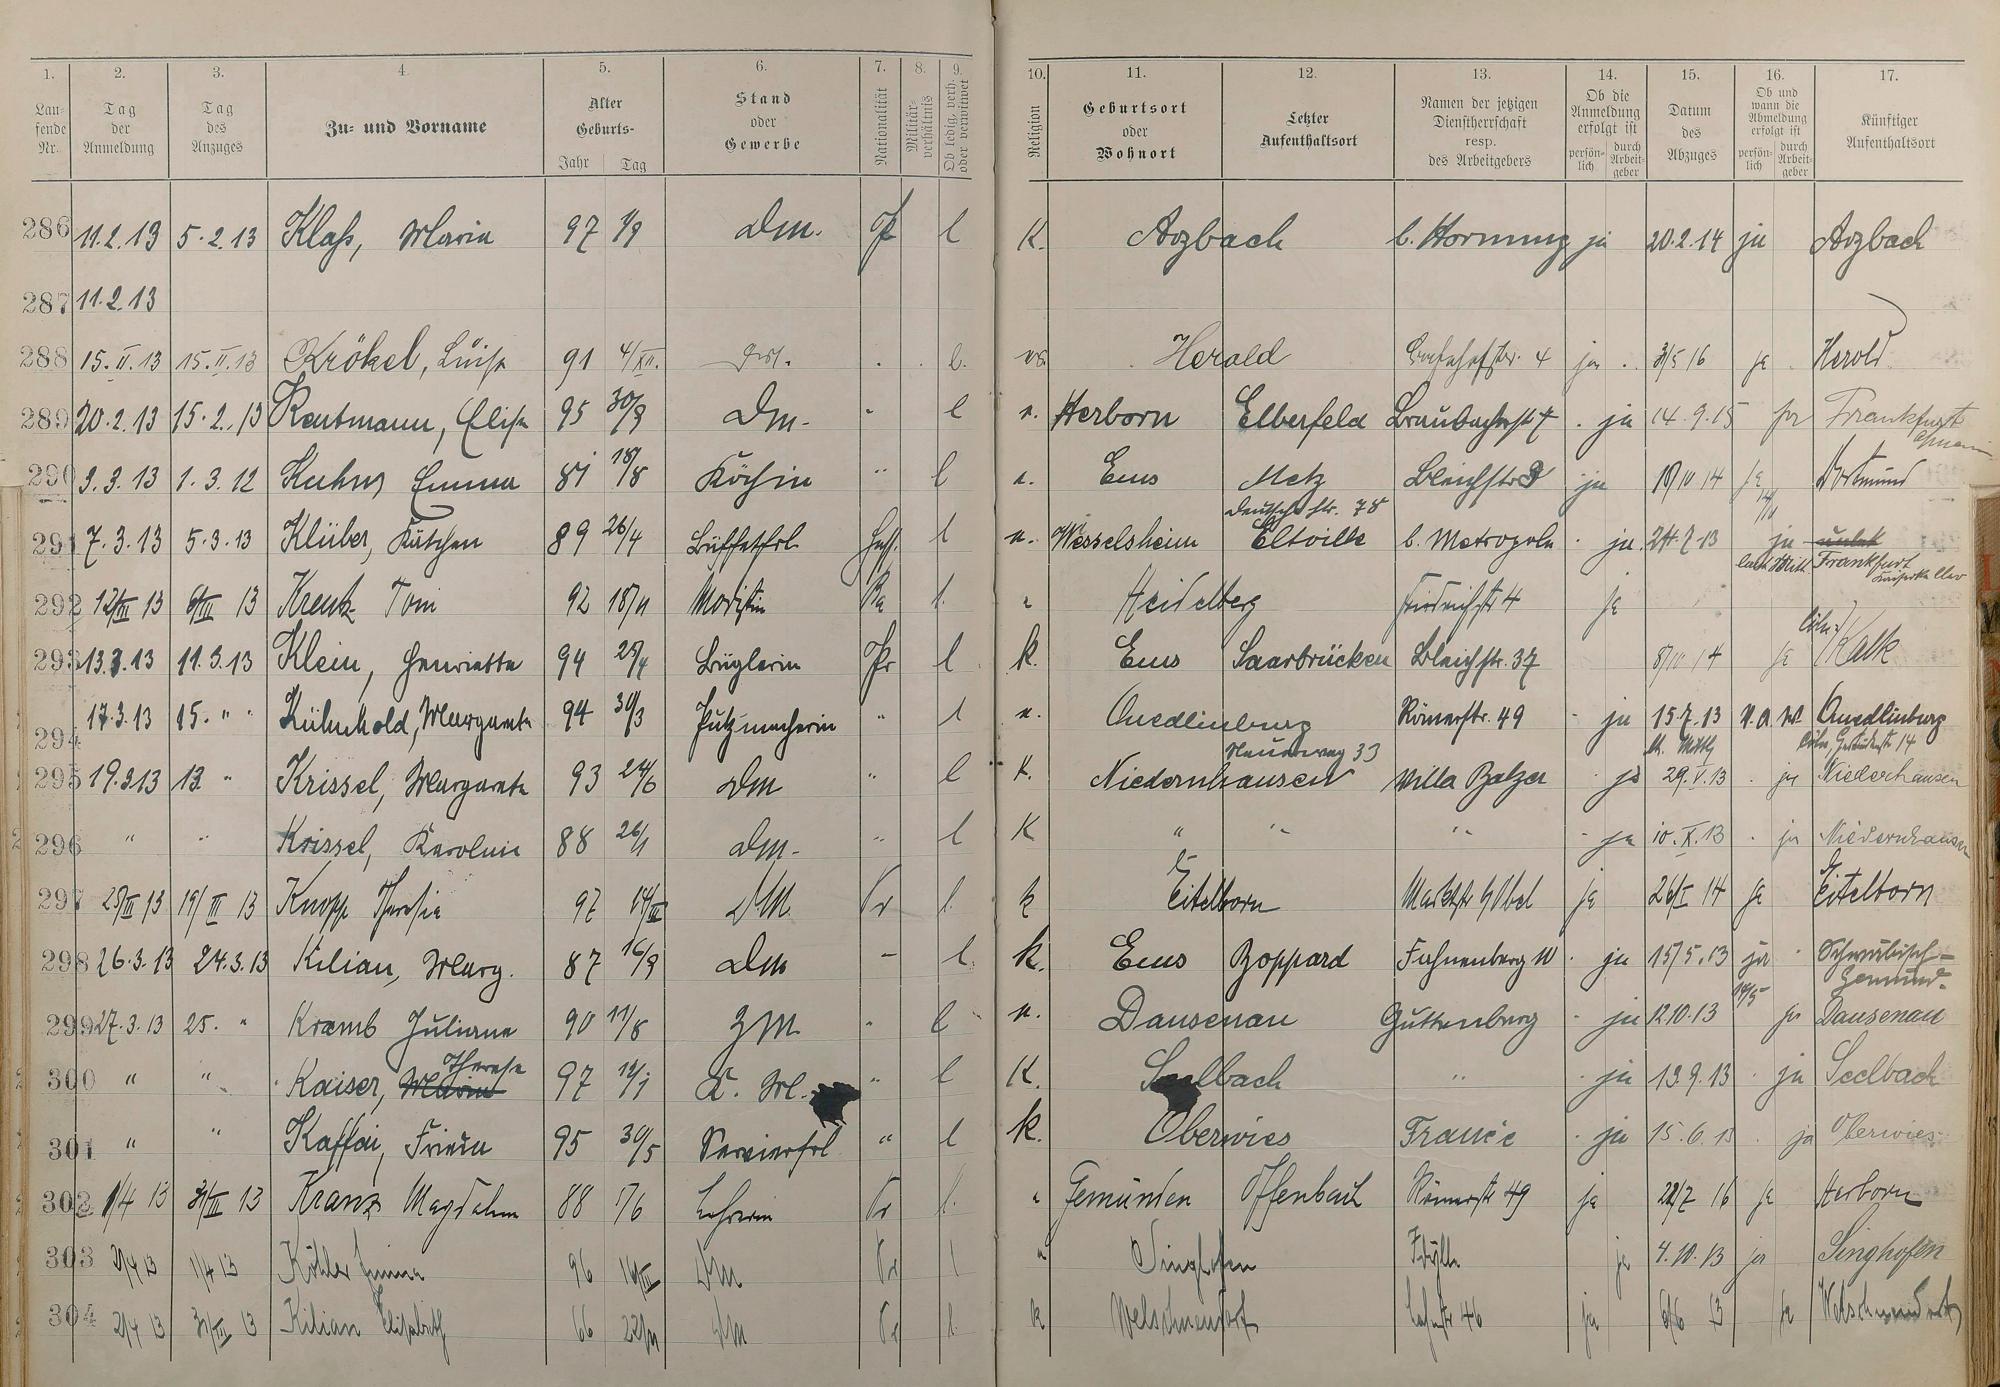 1. 2. 3. 4. 5. 6. 7. 8. 9. 10. 11. 12. 13. 14. 15. 16. 17.
Laufende Nr. Tag der Anmeldung Tag des Anzuges Zu- und Vorname Alter Geburts- Jahr Tag Stand oder Gewerbe Nationalität Militärverhältnis Ob ledig, verh. oder verwitwet Religion Geburtsort oder Wohnort Letzter Aufenthaltsort Namen der jetzigen Dienstherrschaft resp. des Arbeitgebers Ob die Anmeldung erfolgt ist persönlich durch Arbeitgeber Datum des Abzuges Ob und wann die Abmeldung erfolgt ist persönlich durch Arbeitgeber Künftiger Aufenthaltsort
286 11.2.13 5.2.13 Klaß, Maria 97 Dm. l K. Arzbach b. Hornung ja 20.2.14 ja Arzbach
287 11.2.13
288 15.II.13 15.II.13 Krökel, Luise 91 4/XII. l. Herold Bahnhofstr. 4 ja 3/5 16 ja Herold
289 20.2.13 15.2.13 Rentmann, Elise 95 30/9 Dm. " l Herborn Elberfeld Braubacherstr 7 ja 14.9.15 ja Frankfurt
290 3.3.13 1.3.12 Kuhns Emma 81 18/8 Köchin " l Ems Metz Bleichstr 9 ja 18/IV 14 ja Dortmund
Deutsche Str. 78
291 7.3.13 5.3.13 Klüber, Kätchen 89 26/4 Büffetfrl. Hess. l Wesselsheim Eltville b. Metropole ja 24.7.13 ja Frankfurt
292 12/III 13 6/III 13 Kreutz Toni 92 18/11 Modistin l. Heidelberg Friedrichstr 4 ja
293 13.3.13 11.3.13 Klein, Henriette 94 25/4 Büglerin Pr l k. Ems Saarbrücken Bleichstr. 37 14 ja Cöln Kalk
294 17.3.13 15. " " Kühnhold, Margarete 94 30/3 Putzmacherin " l Quedlinburg Römerstr. 49 ja 15.7.13 v. a. w. Quedlinburg
Neuerweg 33
295 19.3.13 13 " Krissel, Margarete 93 24/6 Dm " l K. Niedernhausen Villa Balzer ja 29.V.13 ja Niederhausen
296 " " Krissel, Karoline 88 26/1 Dm. " l K " " " ja 10.X.13 ja Niedernhausen
297 28/III 13 19/III 13 Knopp Theresie 97 14/III DM Pr l k Eitelborn Marktstr Göbel ja 26/I 14 ja Eitelborn
298 26.3.13 24.3.13 Kilian, Marg. 87 16/9 Dm l. k. Ems Boppard Fahnenberg W ja 15/5.13 ja Schwäbisch-Gemünd.
299 27.3.13 25. " Kramb Juliane 90 11/8 ZM. " l Dausenau Guttenberg ja 12.10.13 ja Dausenau
300 " " Kaiser, Marie Therese 97 " l K. Seelbach " ja 13.9.13 ja Seelbach
301 " " Kaffai, Frieda 95 30/5 Servierfrl " l k. Oberwies France ja 15.6.13 ja Oberwies
302 1/4 13 31/III 13 Kranz Magdalene 88 Lehrerin Pr l. Gemünden Offenbach Römerstr 49 ja 22/7 16 ja Herborn
303 1/4 13 Köhler Emma 96 16/III DM Pr l " Singhofen Idylle ja 4.10.13 ja Singhofen
304 2/4 13 31/III 13 Kilian Elisabeth 66 DM Pr l. k Welschneudorf 46 ja 6/6 13 ja